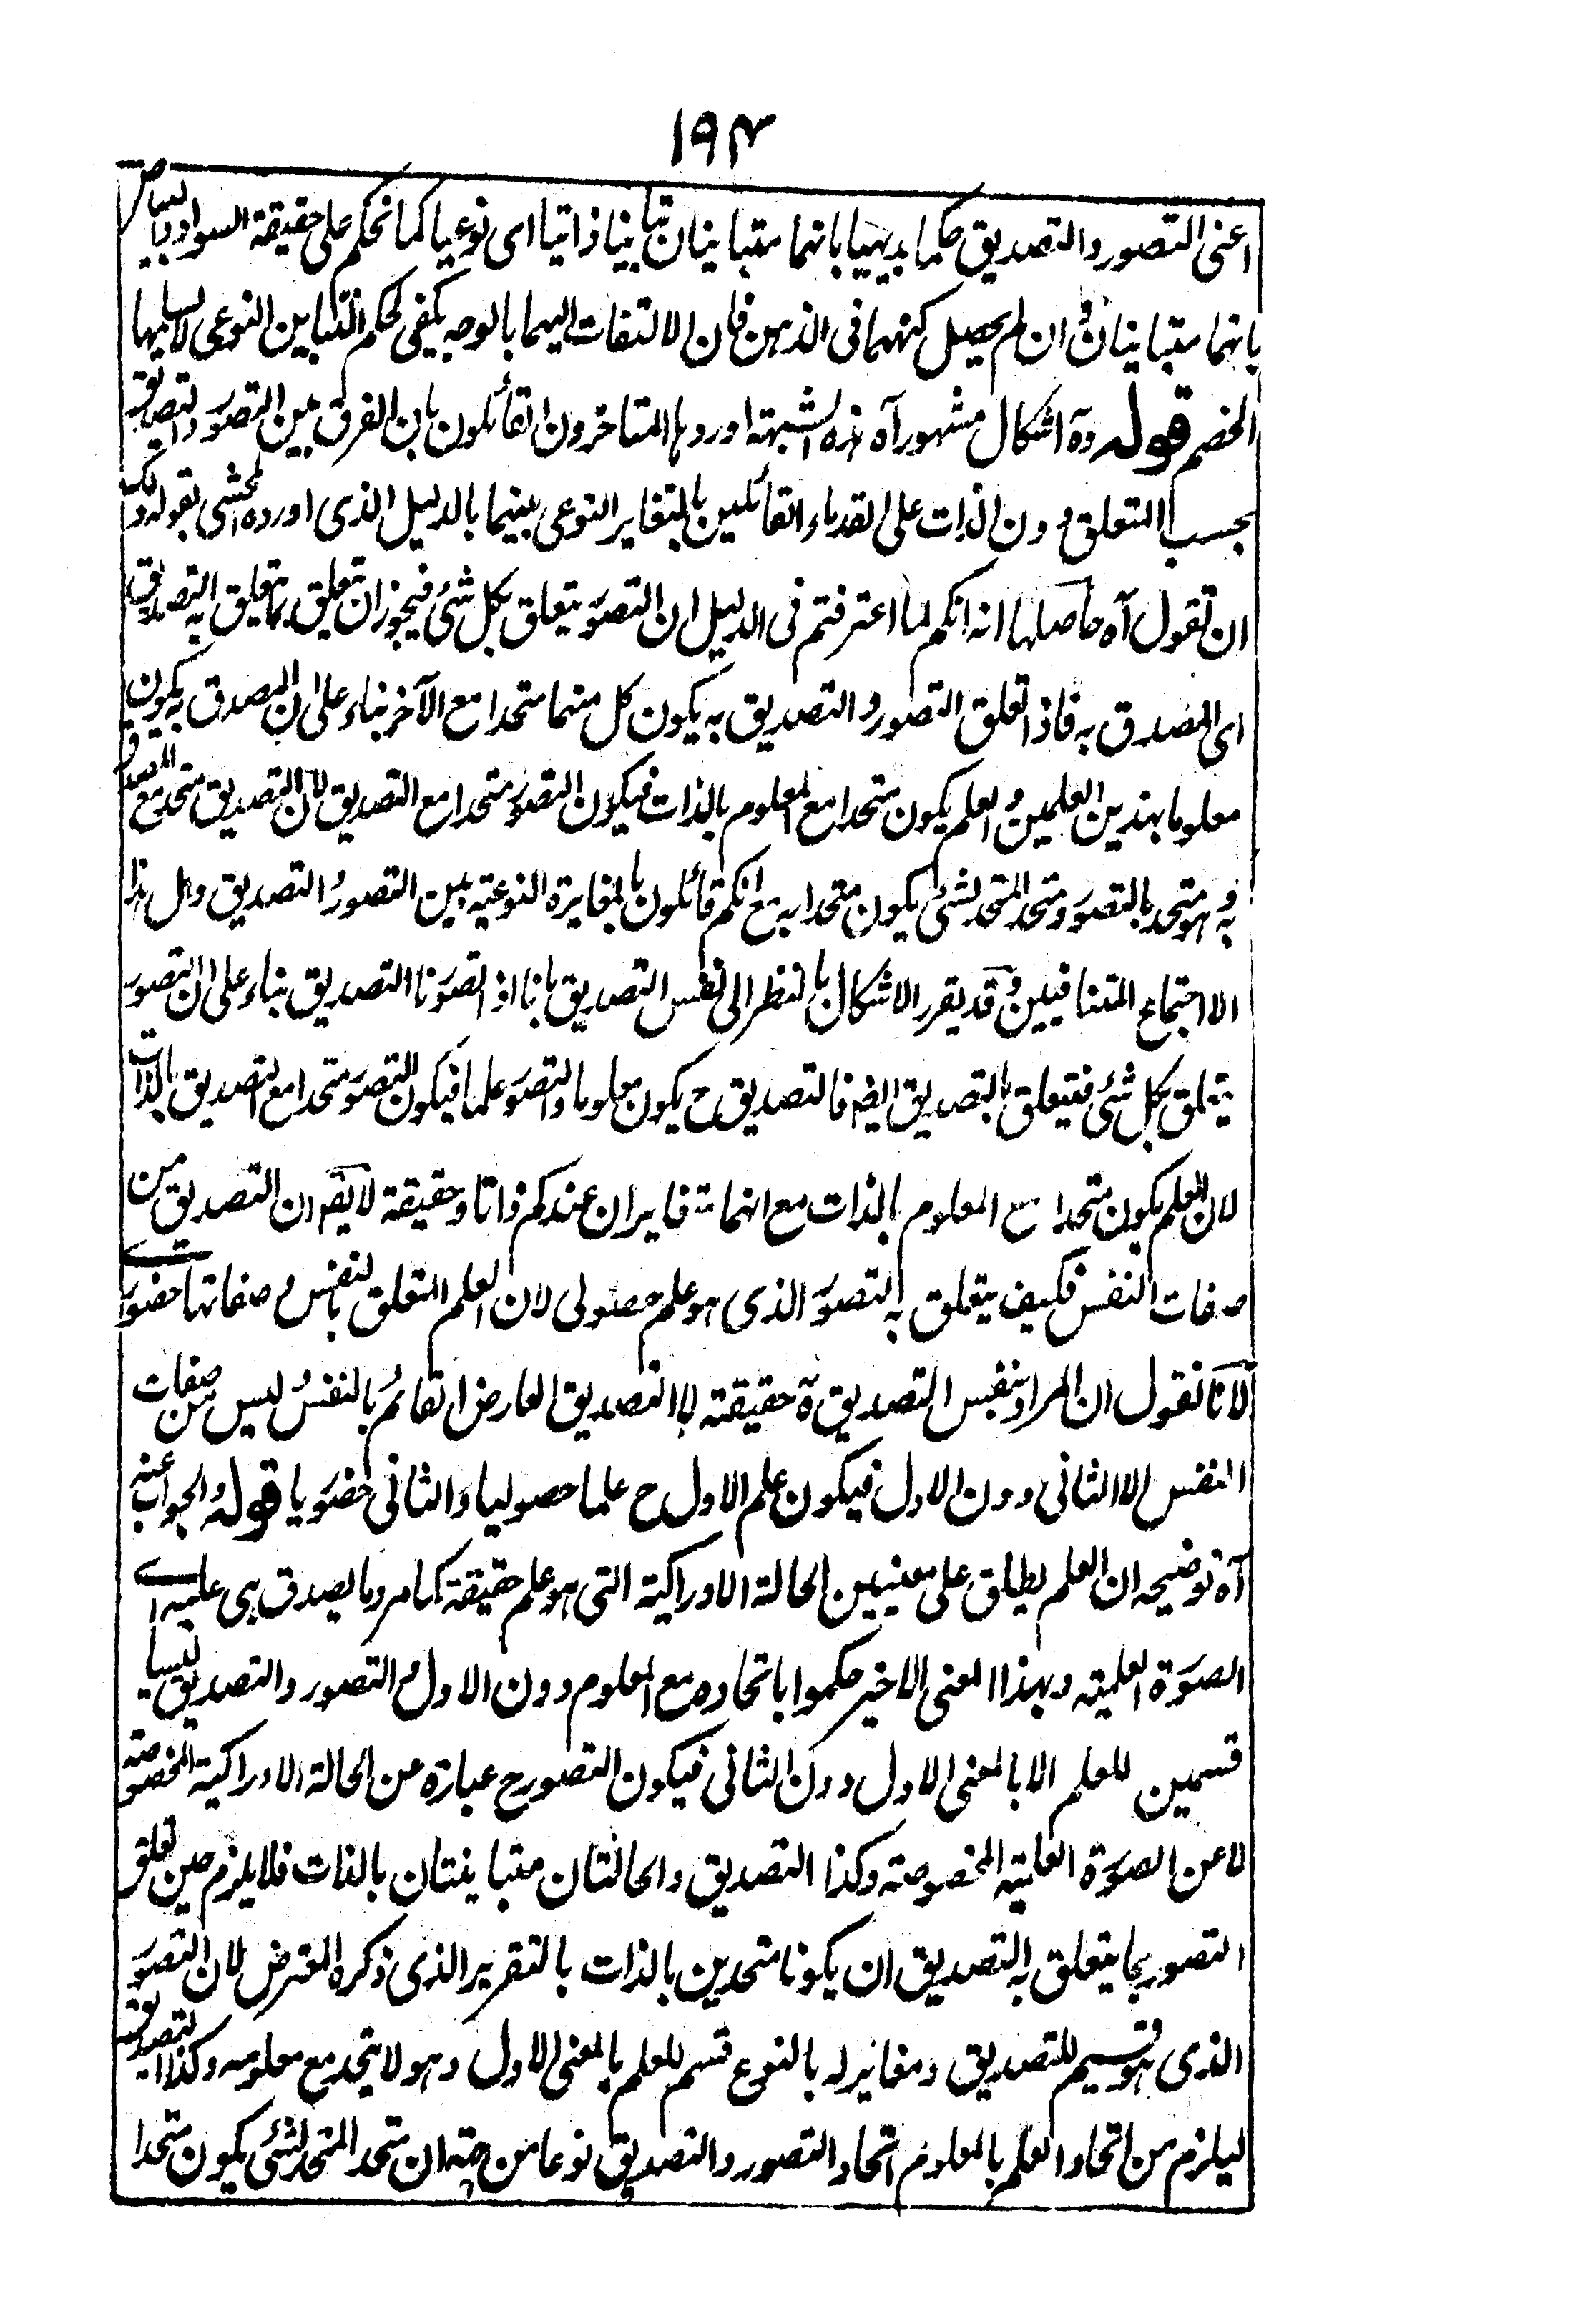 ۱۹۴
اعنى التصور والتصديق حكما بديهيا بانهما متباينان تباينا ذاتيا اى نوعيا كما نحكم على حقيقة السواد والبياض
بانهما متباينان وان لم يحصل كنههما فى الذهن فان الالتفات اليهما بالوجه يكفى لحكم التباين النوعى لا يسلمها
الخصم قوله وههنا اشكال مشهور آه هذه الشبهة اوردها المتاخرون القائلون بان الفرق بين التصور والتصديق
بحسب التعلق دون الذات على القدماء القائلين بالتغاير النوعى بينهما بالدليل الذى اورده المحشى بقوله ولك
ان تقول آه حاصلها انه انكم لما اعترفتم فى الدليل ان التصور يتعلق بكل شئ فيجوز ان يتعلق بما يتعلق به التصديق
اى المصدق به فاذا تعلق التصور والتصديق به يكون كل منهما متحدا مع الآخر بناء على ان المصدق به يكون
معلوما بهذين العلمين والعلم يكون متحدا مع المعلوم بالذات فيكون التصور متحدا مع التصديق لان التصديق متحد مع المصدق
به وهو متحد بالتصور ومتحد المتحد لشئ يكون متحدا به مع انكم قائلون بالمغايرة النوعية بين التصور والتصديق وهل هذا
الا اجتماع المتنافيين وقد يقرر الاشكال بالنظر الى نفس التصديق بانا اذا تصورنا التصديق بناء على ان التصور
يتعلق بكل شئ فيتعلق بالتصديق ايضا فالتصديق ح يكون معلوما والتصور علما فيكون التصور متحدا مع التصديق بالذات
لان العلم يكون متحدا مع المعلوم بالذات مع انهما متغايران عندكم ذاتا وحقيقة لا يقم ان التصديق من
صفات النفس فكيف يتعلق به التصور الذى هو علم حصولى لان العلم المتعلق بالنفس وصفاتها حضورى
لانا نقول ان المراد بنفس التصديق ة حقيقته لا التصديق العارض القائم بالنفس وليس من صفات
النفس الا الثانى دون الاول فيكون علم الاول ح علما حصوليا والثانى حضوريا قوله والجواب عنه
آه توضيحه ان العلم يطلق على معنيين الحالة الادراكية التى هو علم حقيقة كما مر وما يصدق هى عليه اى
الصورة العلمية وبهذا المعنى الاخير حكموا باتحاده مع المعلوم دون الاول والتصور والتصديق ليسا
قسمين للعلم الا بالمعنى الاول دون الثانى فيكون التصور ح عبارة عن الحالة الادراكية المخصوصة
لا عن الصورة العلمية المخصوصة وكذا التصديق والحالتان متباينتان بالذات فلا يلزم حين تعلق
التصور بما يتعلق به التصديق ان يكونا متحدين بالذات بالتقرير الذى ذكره المعترض لان التصور
الذى هو قسيم للتصديق ومغاير له بالنوع قسم للعلم بالمعنى الاول وهو لا يتحد مع معلومه وكذا التصديق
ليلزم من اتحاد العلم بالمعلوم اتحاد التصور والتصديق نوعا من جهة ان متحد المتحد لشئ يكون متحدا